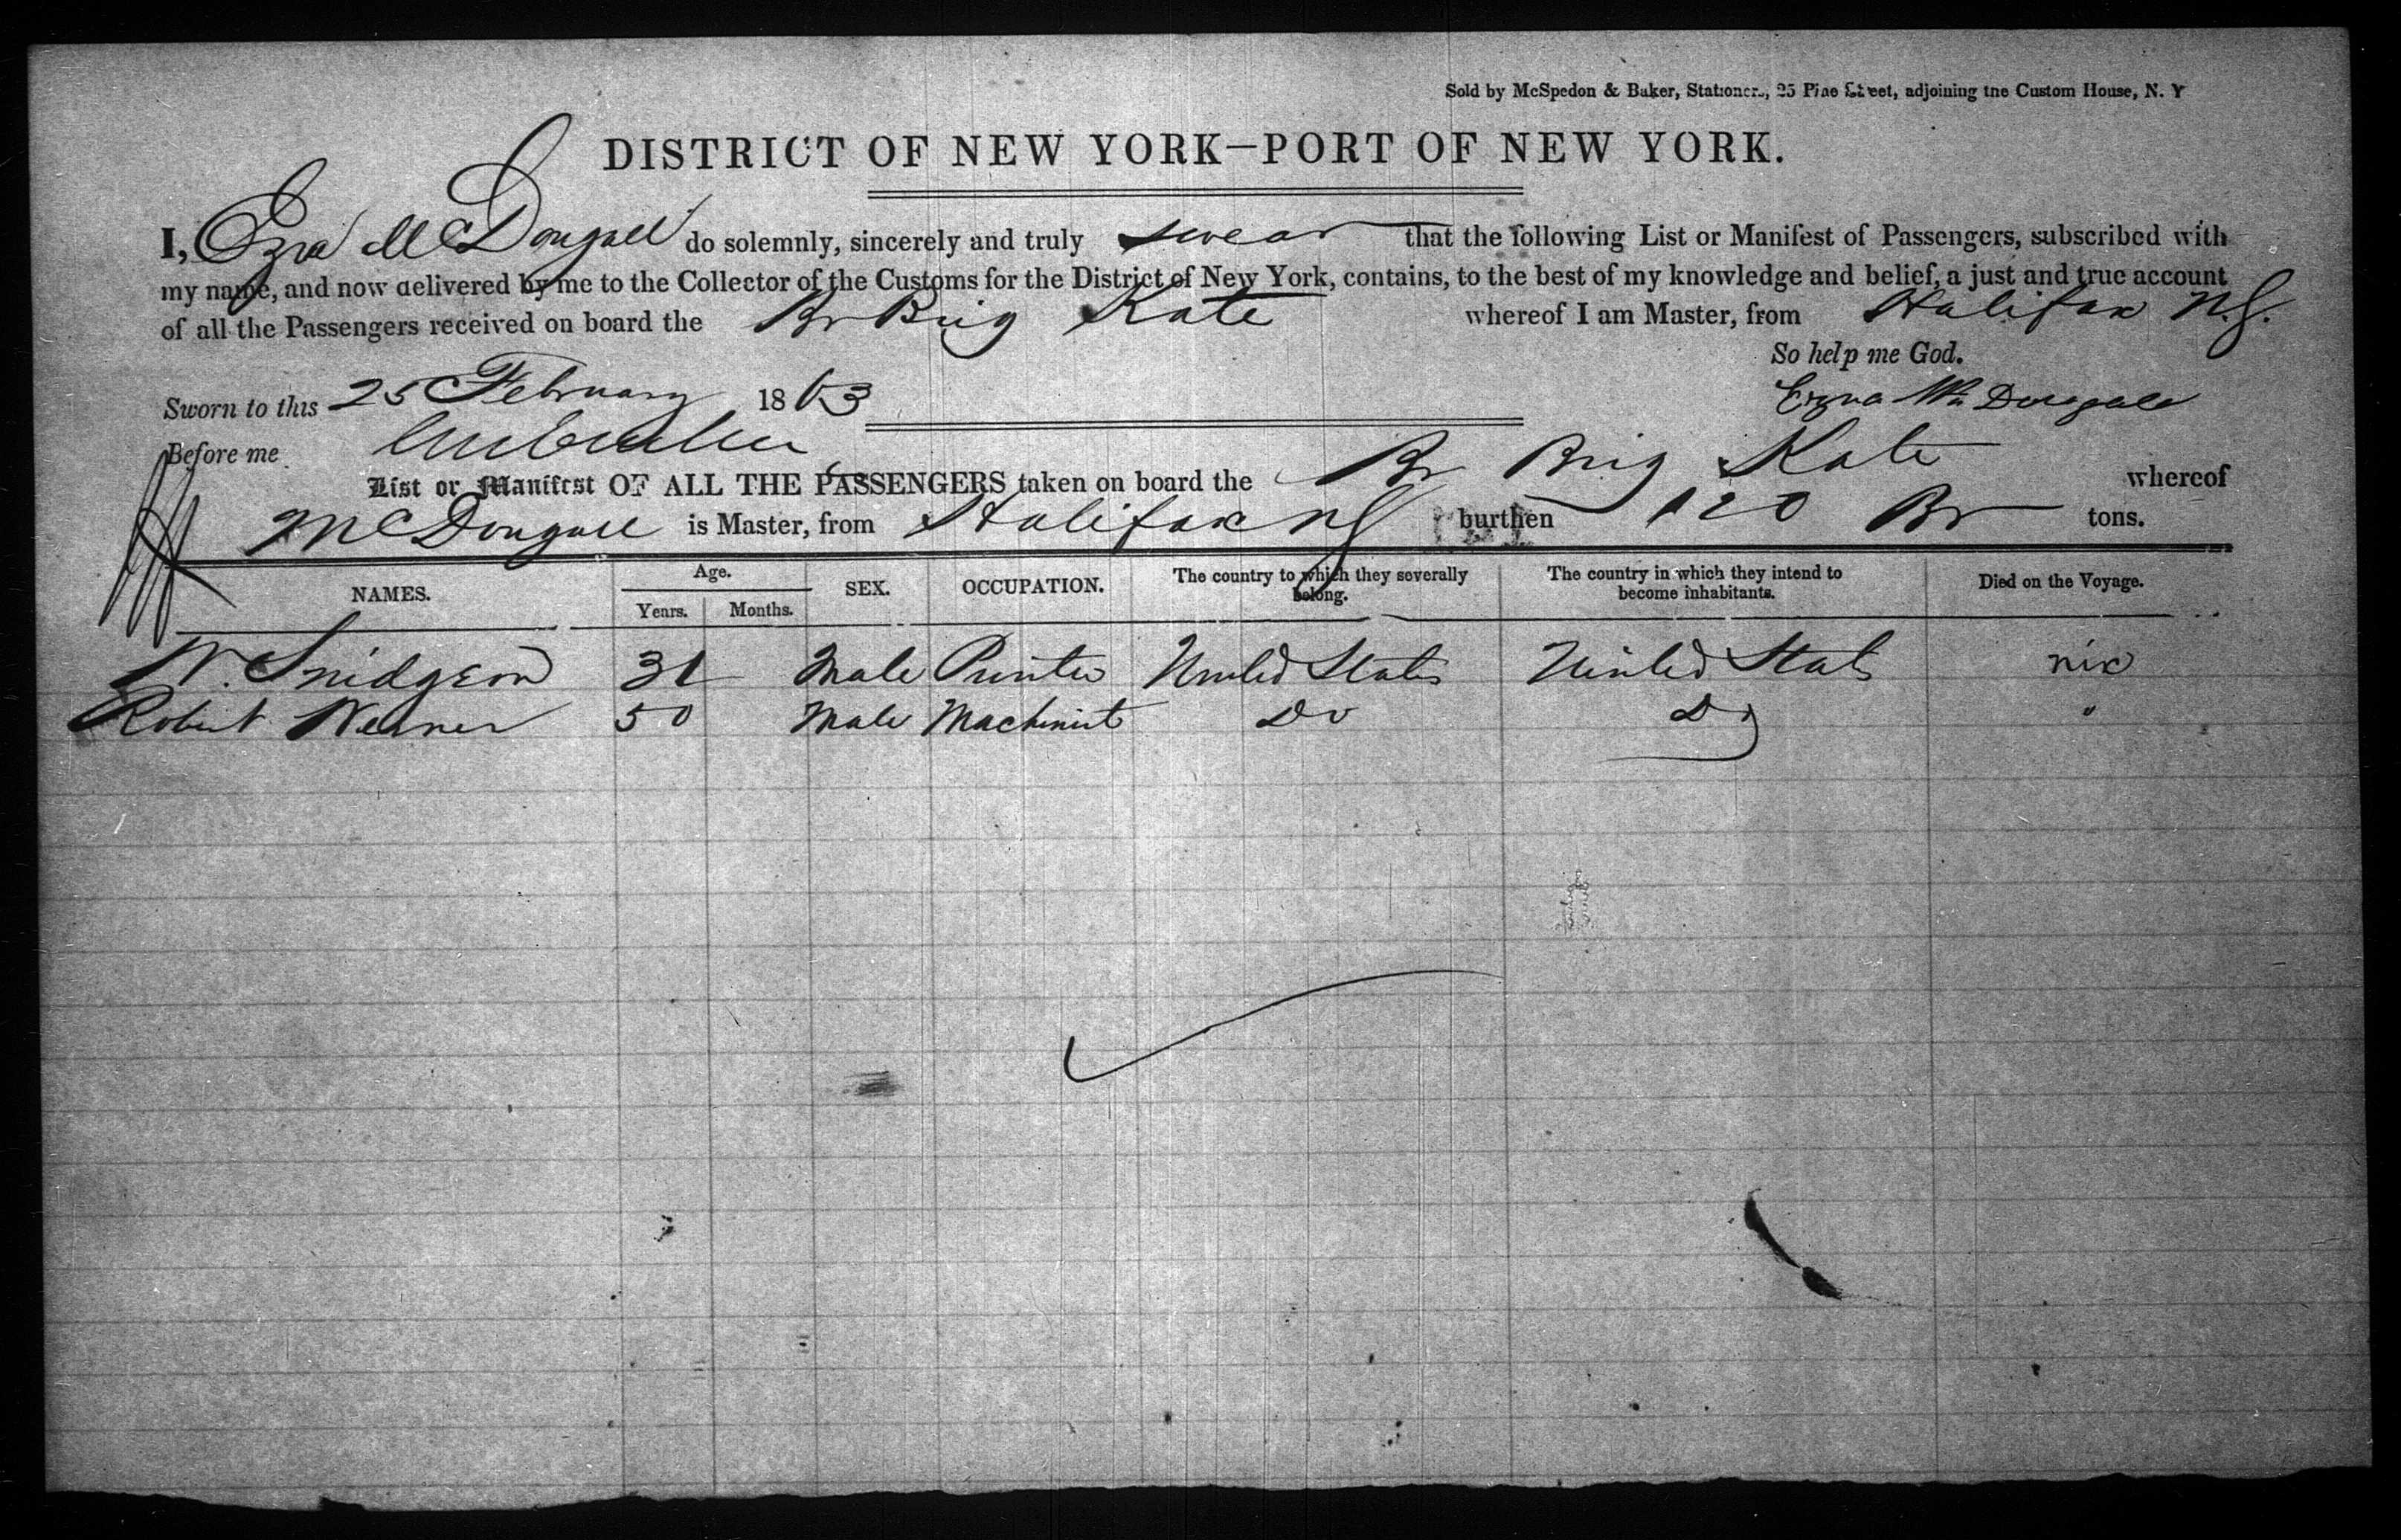 Sold by McSpedon & Baker, Stationers, 25 Pine Street, adjoining the Custom House, N. Y
DISTRICT OF NEW YORK—PORT OF NEW YORK.
I, Ezra McDougall do solemnly, sincerely and truly swear that the following List or Manifest of Passengers, subscribed with
my name, and now delivered by me to the Collector of the Customs for the District of New York, contains, to the best of my knowledge and belief, a just and true account
of all the Passengers received on board the Br Brig Kate whereof I am Master, from Halifax N.S.
So help me God.
Sworn to this 25 February 1863
Ezra McDougall
Before me
List or Manifest OF ALL THE PASSENGERS taken on board the Br Brig Kate whereof
McDougall is Master, from Halifax NS burthen 120 Br tons.
NAMES. Age. Years. Months. SEX. OCCUPATION. The country to which they severally belong. The country in which they intend to become inhabitants. Died on the Voyage.
W. Snidgeon 31 Male Printer United States United States nix
Robert Weaner 50 Male Machinist Do Do "